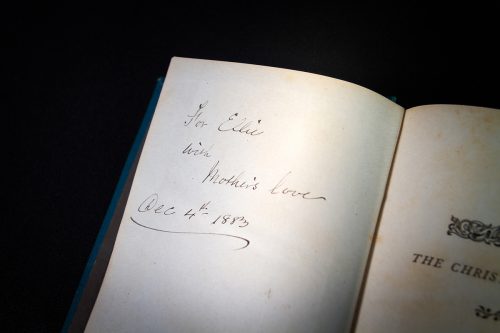 For Ellie
with
Mother's love
Dec 4th 1883
THE CHRIS